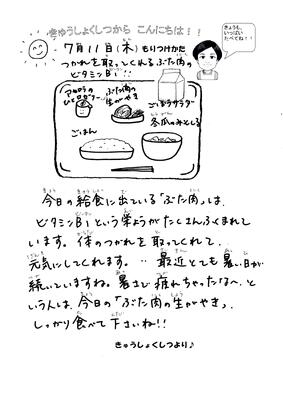 きゅうしょくしつから こんにちは!!
きょうも、
いっぱい
たべてね!!
7月11日(木)もりつけかた
つかれを取ってくれるぶた肉の
ビタミンB1!!
ぶた肉の
生がやき
ごぼうサラダ
冬瓜のみそしる
ごはん
今日の給食に出ている「ぶた肉」は、
ビタミンB1という栄ようがたくさんふくまれて
います。体のつかれを取ってくれて、
元気にしてくれます。‥最近とても暑い日が
続いていますね。暑さで疲れちゃったな〜、と
いう人は、今日の「ぶた肉の生がやき」、
しっかり食べて下さいね!!
きゅうしょくしつより♪